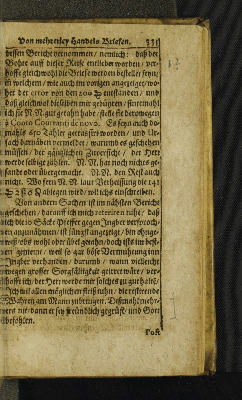 Von mehrerley Handels Briefen. 331
dessen Bericht vernommen / nemlich: daß der
Bohte auff dieser Reise entleibet worden / ver-
hoffe gleichwohl die Briefe werden bestellet seyn/
in welchem / wie auch im vorigen angezeiget / wo-
her der error von den 200 entstanden / und
daß gleichwol dieselben mir gebühren / sintemahl
ich sie N. N. gut gethan habe / stelle sie derowegen
à Conto Courrent de novo. Es seyn auch do-
mahls 650 Tahler getrassiret worden / und Ur-
sach darneben vermeldet / warumb es geschehen
müssen / der gäntzlichen Zuversicht / der Herr
werde selbige zahlen. N. N. hat noch nichts ge-
sandt oder übergemacht. N. N. den Rest auch
nicht. Wofern N. N. laut Verheissung die 141
ablegen wird / wil ichs einschreiben.
Von andern Sachen ist im nähsten Bericht
geschehen / darauff ich mich referiren ruhe / daß
ich die 10 Säcke Pfeffer gegen Ingber verstoch-
en anzunähmen / ist jüngst angezeigt / bin ehrge-
wiß obs wohl oder übel gethan / doch ists im best-
en gemeint / weil so gar böse Vermuhtung im
Ingber verhanden / darumb / wann vielleicht
wegen grosser Sorgfältigkeit geirret wäre / ver-
hoffe ich der Herr werde mir solches zu gut halte/
Ich wil allen möglichen fleiß tuhn / die restirende
Wahren am Mann zu bringen. Desmahl mehr-
ers nie / dann er sey freundlich gegrüst / und Gott
befohlen.
Post